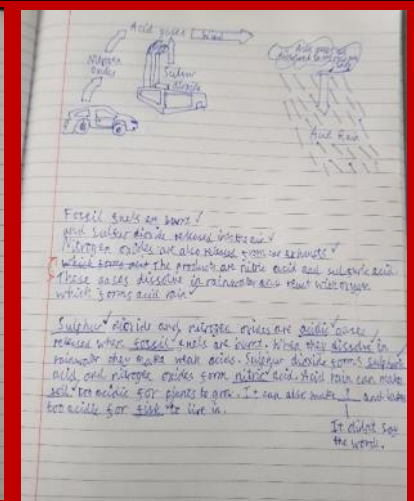 Acid gases
Wind
Nitrogen
oxides
Sulfur
dioxide
Acid gases
Acid Rain
Fossil fuels are burnt
and sulfur dioxide released into the air
Nitrogen oxides are also released from car exhausts
The products are nitric acid and sulfuric acid
These gases dissolve in rainwater and react with oxygen
which forms acid rain
Sulphur dioxide and nitrogen oxides are acidic gases
released when fossil fuels are burnt. When they dissolve in
rainwater they make weak acids. Sulphur dioxide forms sulphuric
acid, and nitrogen oxides form nitric acid. Acid rain can make
soil too acidic for plants to grow. It can also make 1 and lakes
too acidic for fish to live in.
It didn't say
the words.